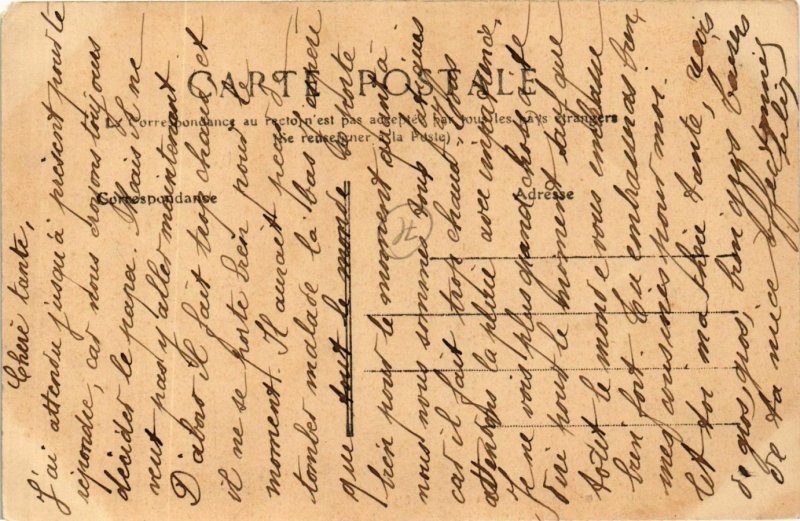 CARTE POSTALE
La Correspondance au recto n'est pas acceptée par tous les pays étrangers
(Se renseigner à la Poste)
Correspondance
Adresse
Chère tante,
J'ai attendu jusqu'à présent pour te
repondre, car nous croyons toujours
décider le papa. Mais il ne
veut pas y aller maintenant
D'abor il fait trop chaud et
il ne se porte bien pour le
moment. Il aurait peur de
tomber malade là bas. J'espère
que tout le monde se porte
bien pour le moment quand à
nous nous sommes tous
car il fait trop chaud. Nous
attendons la pluie avec impatience.
Je ne vois plus grand chose à te
dire pour le moment sauf que
tout le monde vous embrasse
bien fort. Tu embrasseras bien
mes cousines pour moi.
Et toi ma chère tante, reçois
de gros, gros, bien gros baisers
de ta nièce affectionnée